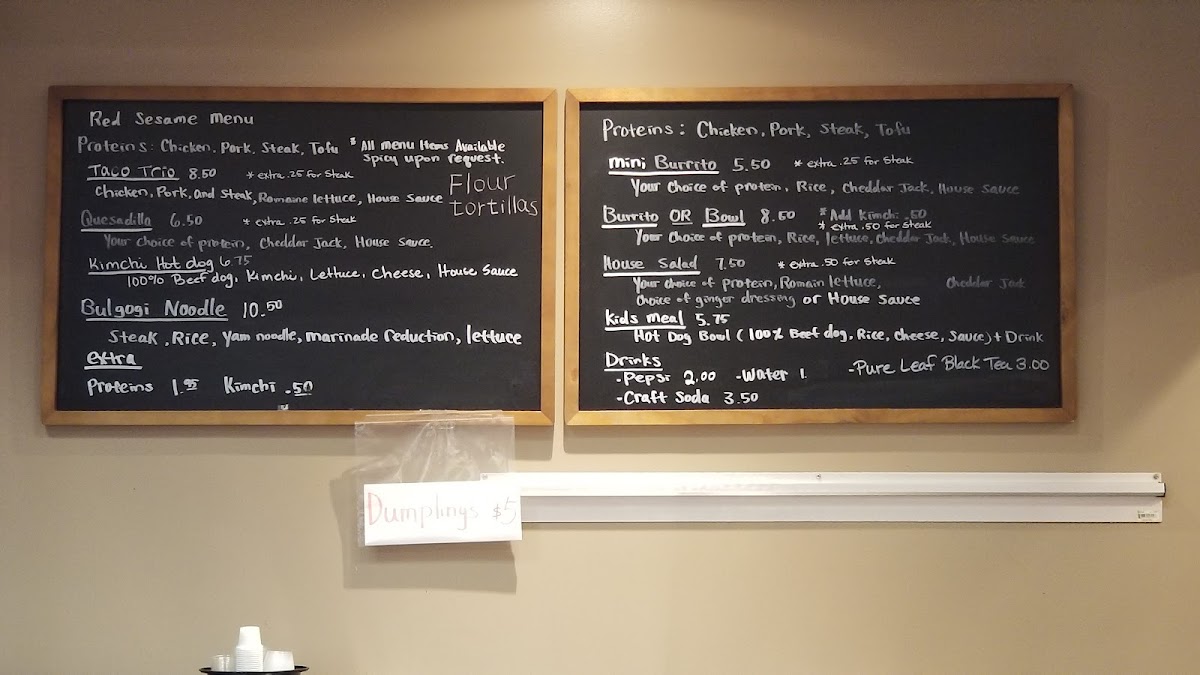 Red Sesame Menu
Proteins: Chicken, Pork, Steak, Tofu * All menu Items Available
Spicy upon request.
Taco Trio 8.50 * extra .25 for Steak
Chicken, Pork, and Steak, Romaine lettuce, House Sauce
Flour
tortillas
Quesadilla 6.50 * extra .25 for Steak
Your choice of protein, Cheddar Jack, House Sauce,
Kimchi Hot dog 6.75
100% Beef dog, Kimchi, Lettuce, Cheese, House Sauce
Bulgogi Noodle 10.50
Steak, Rice, Yam noodle, marinade reduction, lettuce
extra
Proteins 1.95 Kimchi .50
Proteins: Chicken, Pork, Steak, Tofu
mini Burrito 5.50 * extra .25 for Steak
Your choice of protein, Rice, Cheddar Jack, House Sauce
Burrito OR Bowl 8.50 * Add Kimchi .50
* extra .50 for Steak
Your Choice of protein, Rice, lettuce, Cheddar Jack, House Sauce
House Salad 7.50 * extra .50 for Steak
Your choice of protein, Romain lettuce, Cheddar Jack
Choice of ginger dressing or House Sauce
Kids meal 5.75
Hot Dog Bowl (100% Beef dog, Rice, Cheese, Sauce) + Drink
Drinks
-Pepsi 2.00 -Water 1. -Pure Leaf Black Tea 3.00
-Craft Soda 3.50
Dumplings $5